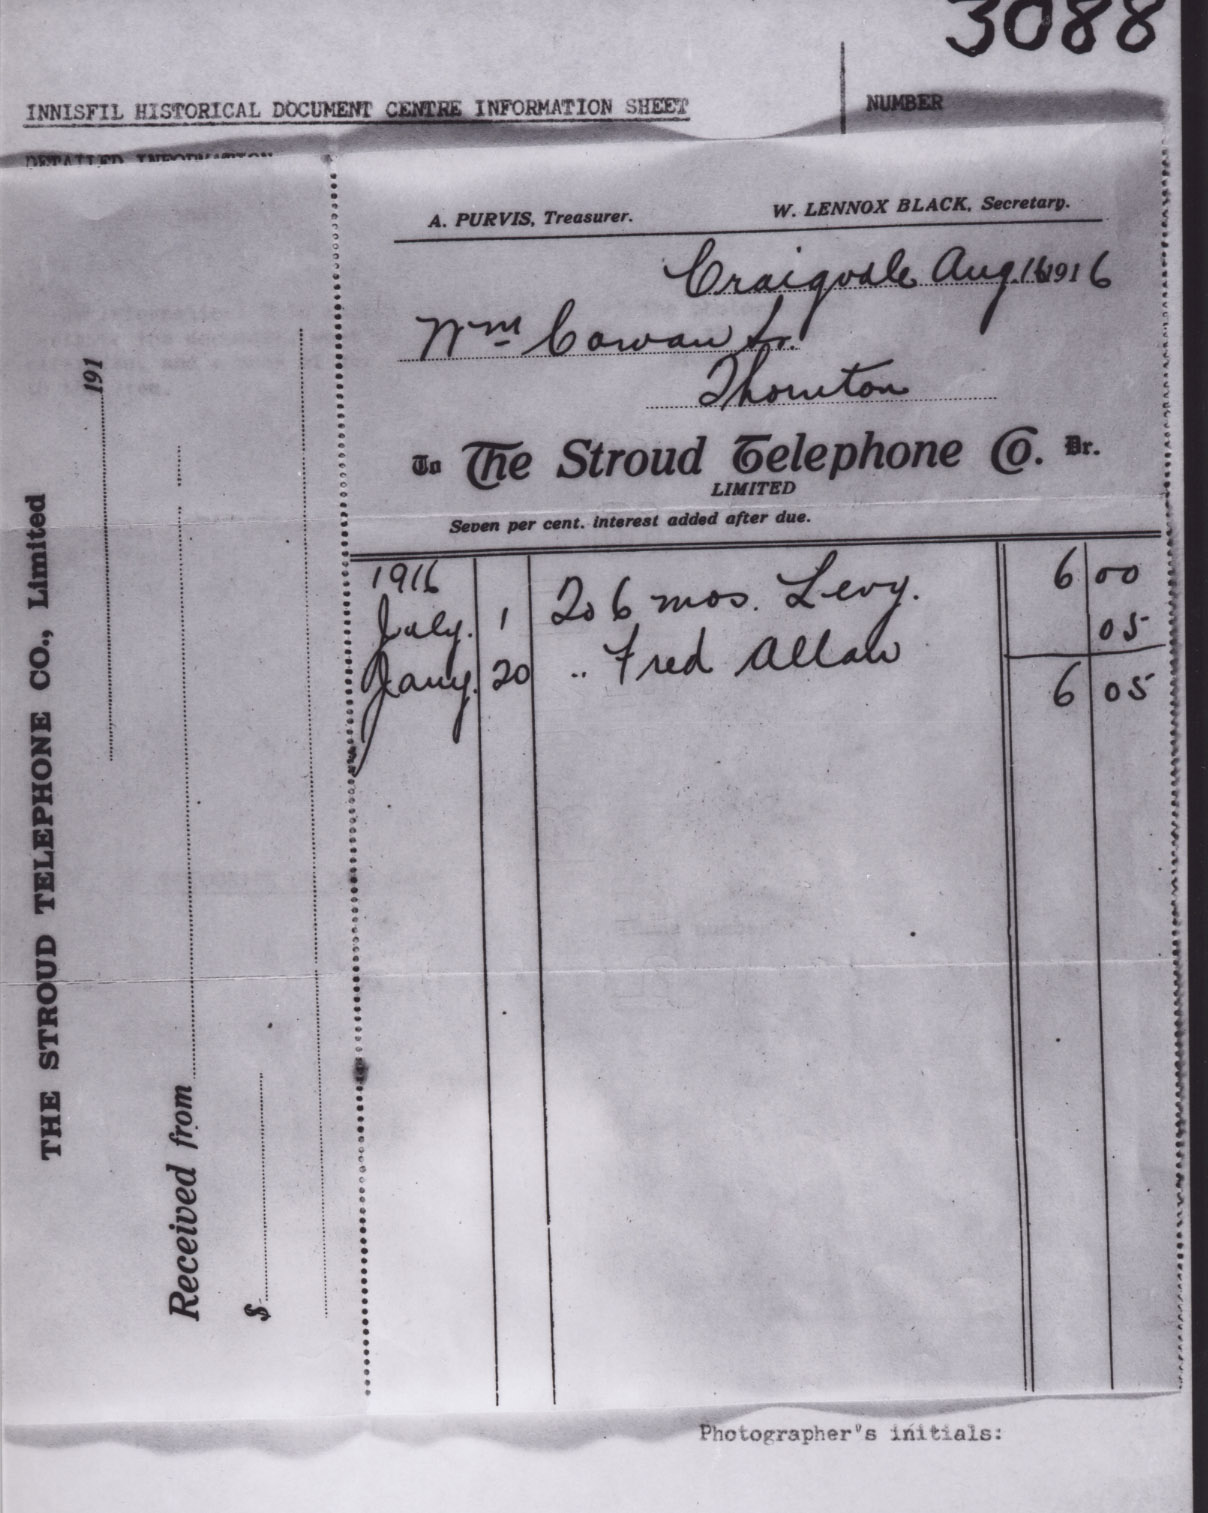 3088
INNISFIL HISTORICAL DOCUMENT CENTRE INFORMATION SHEET
NUMBER
DETAILED INFORMATION
A. PURVIS, Treasurer. W. LENNOX BLACK, Secretary.
Craigvale Aug. 16 1916
Wm Cowan Sr.
Thornton
To The Stroud Telephone Co. Dr.
LIMITED
Seven per cent. interest added after due.
1916
July. 1 To 6 mos. Levy. 6 00
Jany. 20 .. Fred Allan 05
6 05
THE STROUD TELEPHONE CO., Limited
191
Received from
$
Photographer's initials: